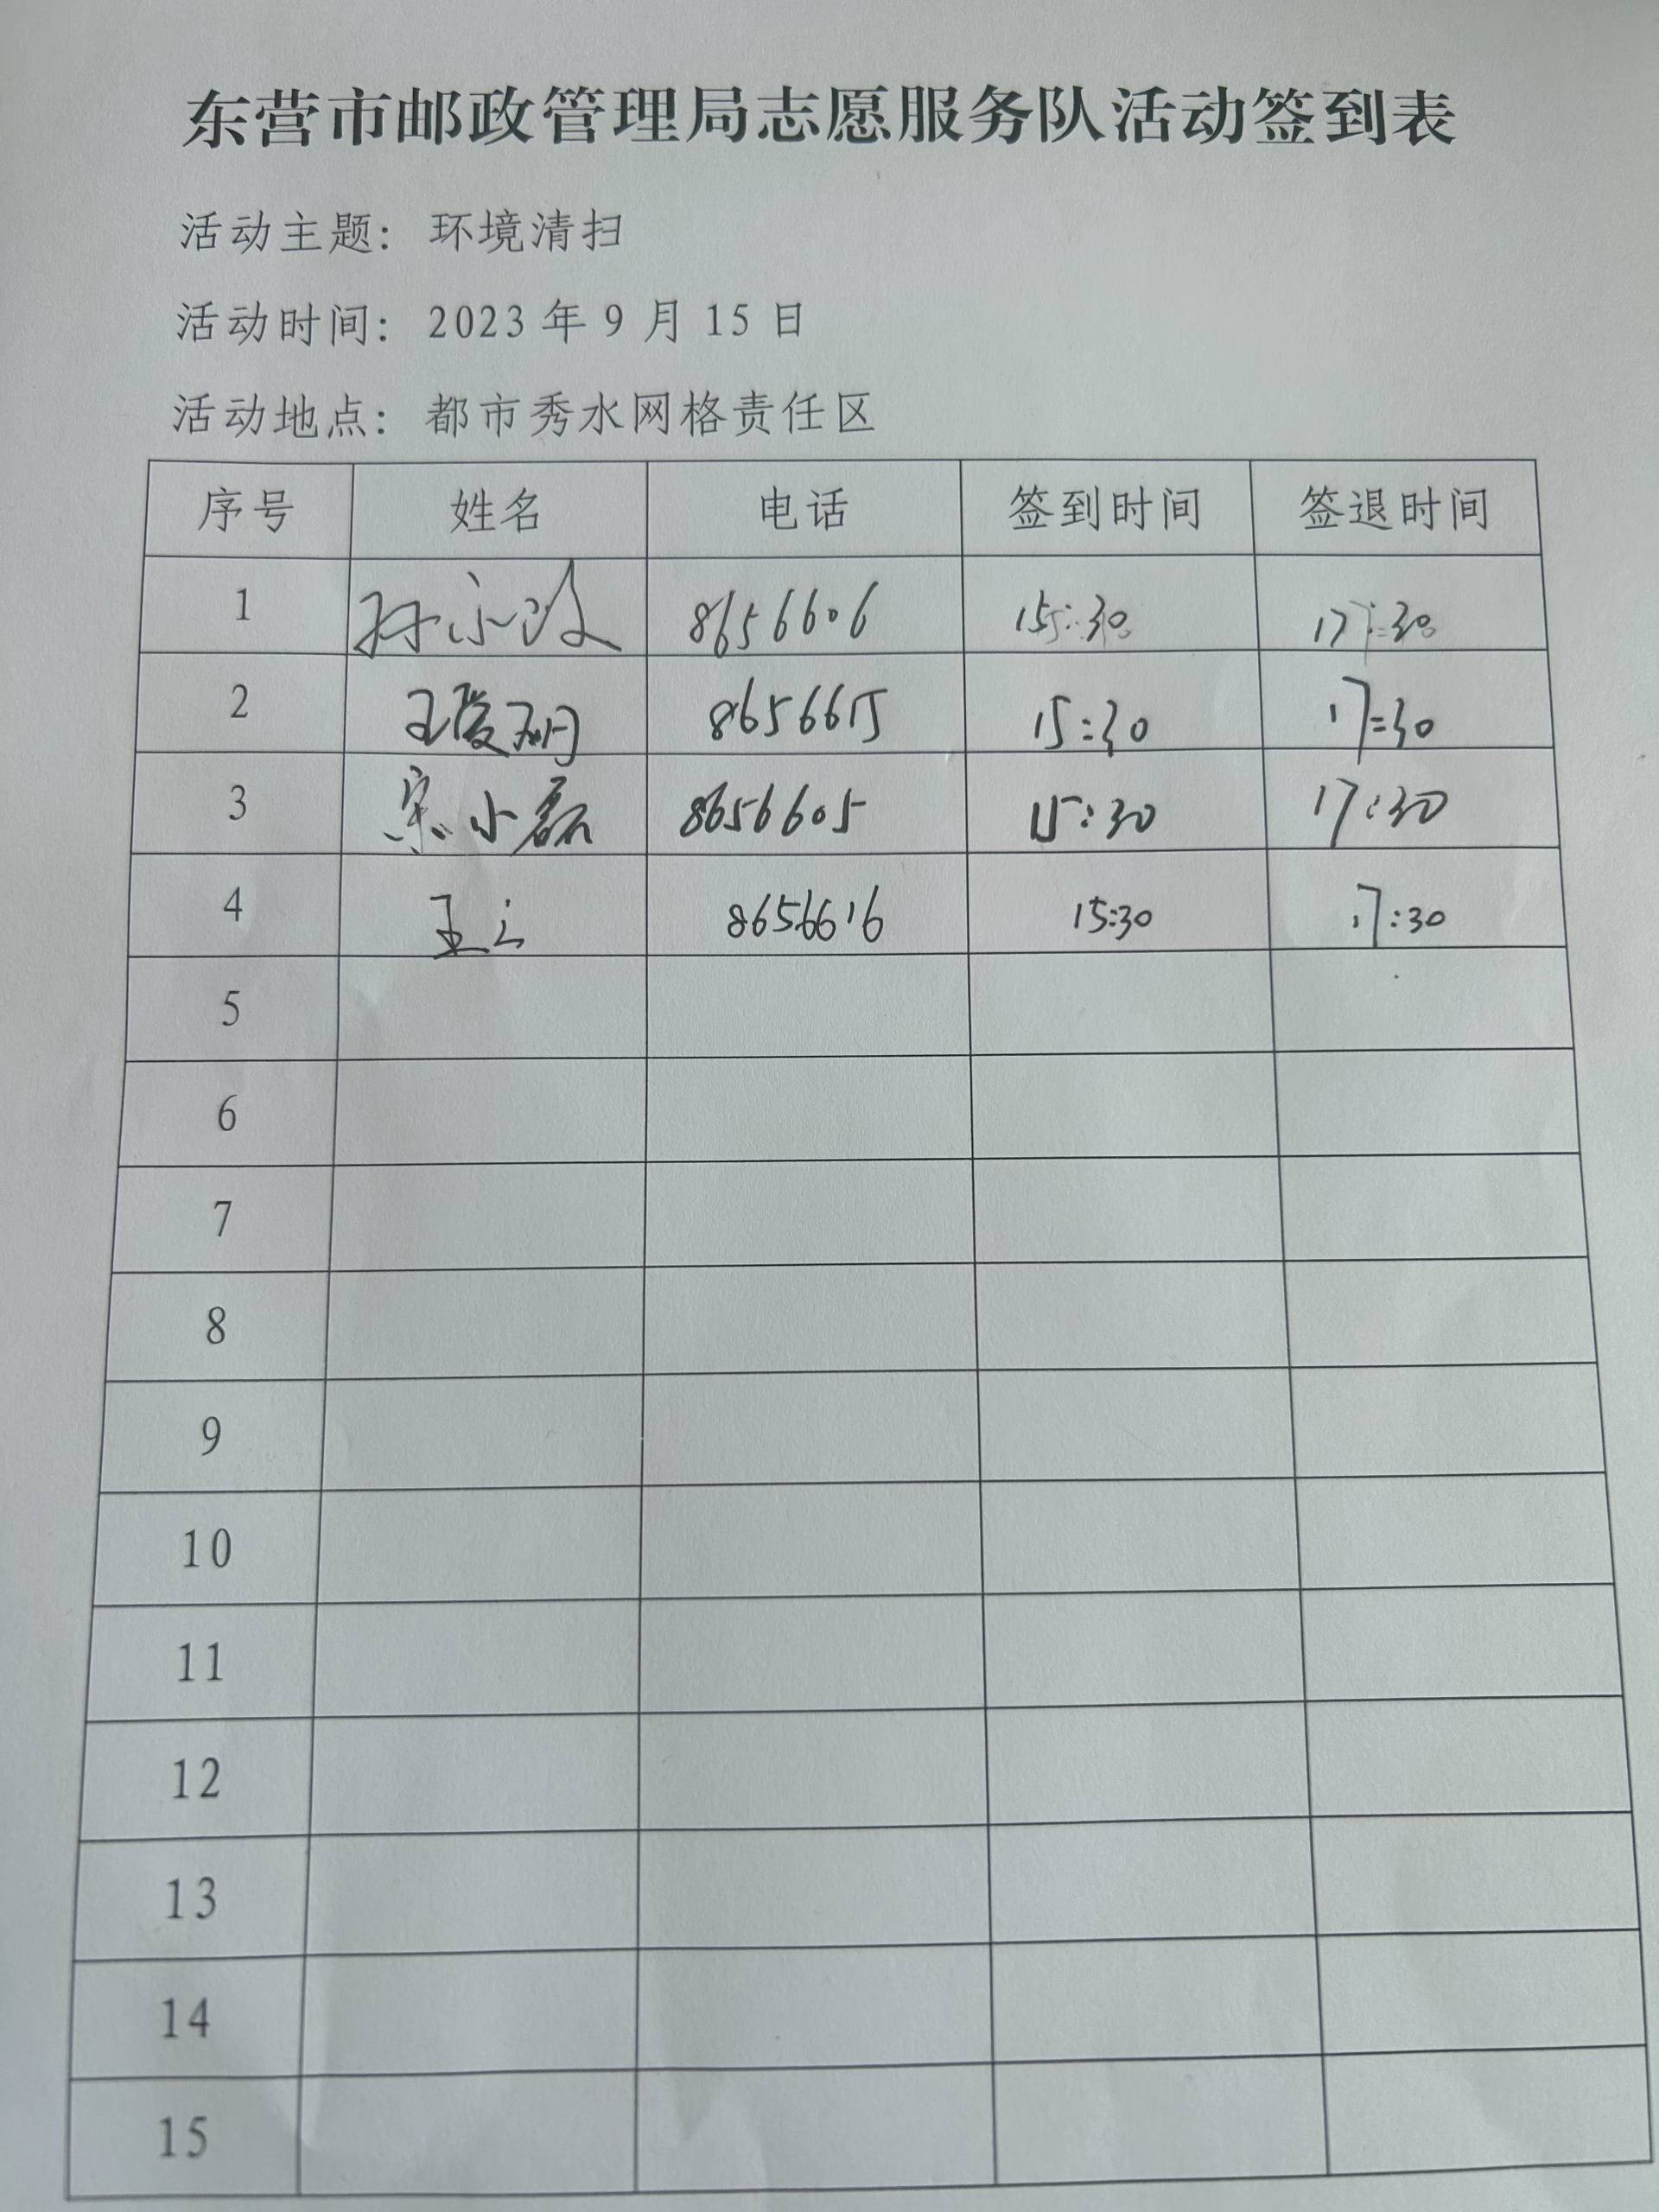 东营市邮政管理局志愿服务队活动签到表
活动主题：环境清扫
活动时间：2023年9月15日
活动地点：都市秀水网格责任区
序号 姓名 电话 签到时间 签退时间
1 8656606 15:30 17:30
2 8656615 15:30 17:30
3 宋小磊 8656605 15:30 17:30
4 8656616 15:30 17:30
5
6
7
8
9
10
11
12
13
14
15